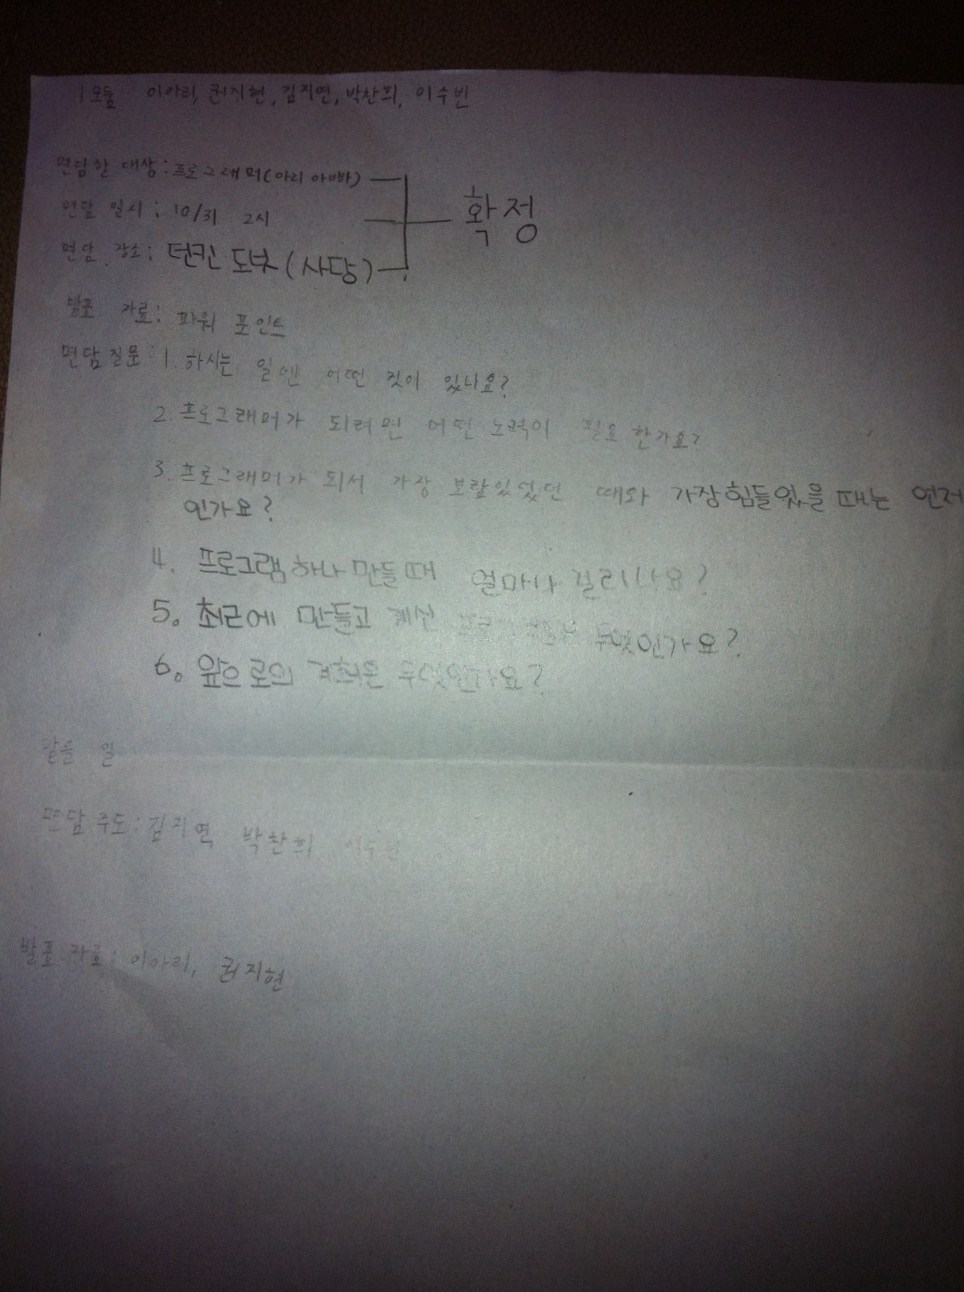 1모둠 이아리, 권지현, 김지연, 박찬희, 이수빈
면담할 대상 : 프로그래머(아리 아빠)
면담 일시 : 10/31 2시
확정
면담 장소 : 던킨 도넛 (사당)
발표 자료 : 파워 포인트
면담 질문 : 1. 하시는 일엔 어떤 것이 있나요?
2. 프로그래머가 되려면 어떤 노력이 필요 한가요?
3. 프로그래머가 되서 가장 보람있었던 때와 가장 힘들었을 때는 언제
인가요?
4. 프로그램 하나 만들 때 얼마나 걸리나요?
5. 최근에 만들고 계신 무엇인가요?
6. 앞으로의 계획은 무엇인가요?
맡을 일
면담 주도 : 김지연 박찬희 이수빈
발표 자료 : 이아리, 권지현